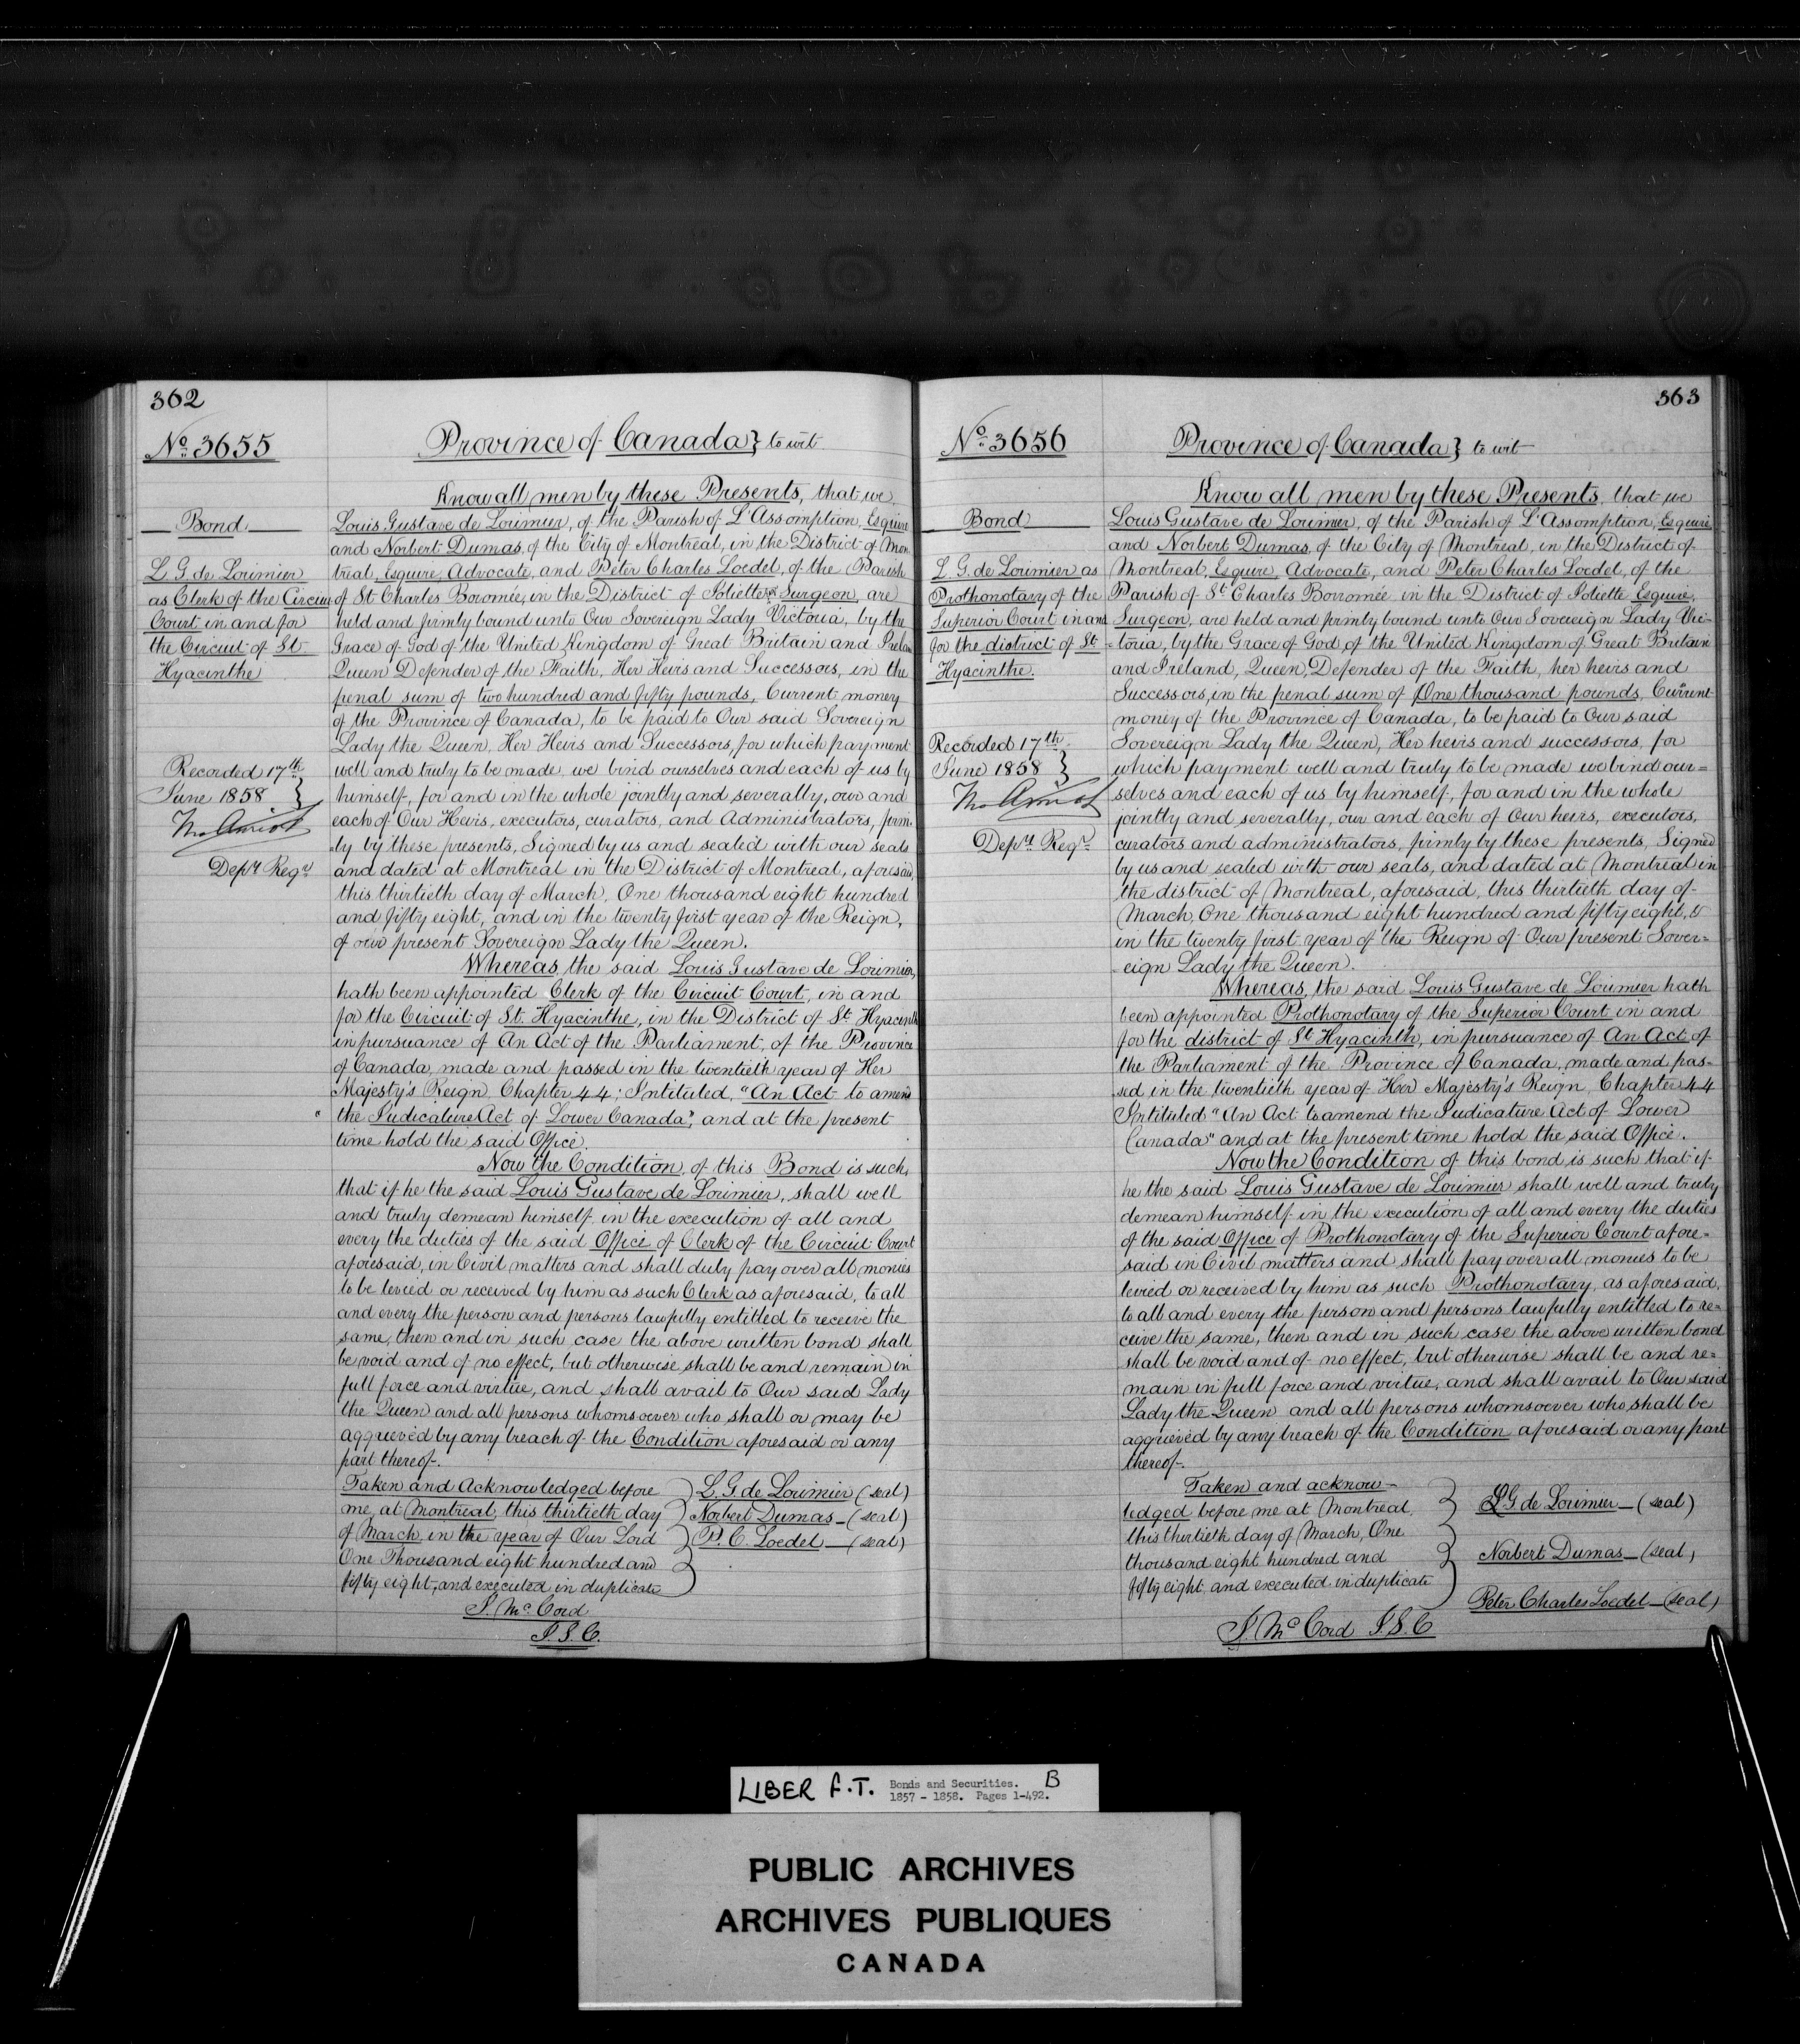 362
No. 3655
Province of Canada } to wit
Know all men by these Presents, that we
Bond
Louis Gustave de Lorimier, of the Parish of L'Assomption, Esquire
and Norbert Dumas, of the City of Montreal, in the District of Mon
L. G. de Lorimier
treal, Esquire, Advocate, and Peter Charles Loedel, of the Parish
as Clerk of the Circuit
of St Charles Boromée, in the District of Joliette Surgeon, are
Court in and for
held and firmly bound unto Our Sovereign Lady Victoria, by the
the Circuit of St
Grace of God of the United Kingdom of Great Britain and Irelan
Hyacinthe
Queen Defender of the Faith, Her Heirs and Successors, in the
penal sum of two hundred and fifty pounds, Current money
of the Province of Canada, to be paid to Our said Sovereign
Lady the Queen, Her Heirs and Successors, for which payment
Recorded 17th
well and truly to be made, we bind ourselves and each of us by
June 1858 }
himself, for and in the whole jointly and severally, our and
each of Our Heirs, executors, curators, and Administrators, firm-
ly by these presents, Signed by us and sealed with our seals
Depy Regr
and dated at Montreal in the District of Montreal, aforesaid,
this thirtieth day of March, One thousand eight hundred
and fifty eight, and in the twenty first year of the Reign,
of our present Sovereign Lady the Queen.
Whereas, the said Louis Gustave de Lorimier,
hath been appointed Clerk of the Circuit Court, in and
for the Circuit of St. Hyacinthe, in the District of St. Hyacinth
in pursuance of An Act of the Parliament, of the Province
of Canada, made and passed in the twentieth year of Her
Majesty's Reign, Chapter 44; Intituled, "An Act to amend
" the Judicature Act of Lower Canada", and at the present
time hold the said Office.
Now the Condition, of this Bond is such,
that if he the said Louis Gustave de Lorimier, shall well
and truly demean himself, in the execution of all and
every the duties of the said Office of Clerk of the Circuit Court
aforesaid, in Civil matters and shall duly pay over all monies
to be levied or received by him as such Clerk as aforesaid, to all
and every the person and persons lawfully entitled to receive the
same, then and in such case the above written bond shall
be void and of no effect, but otherwise shall be and remain in
full force and virtue, and shall avail to Our said Lady
the Queen and all persons whomsoever who shall or may be
aggrieved by any breach of the Condition aforesaid or any
part thereof.
Taken and Acknowledged before } L. G. de Lorimier (seal)
me, at Montreal, this thirtieth day } Norbert Dumas (seal)
of March, in the year of Our Lord } P. C. Loedel (seal)
One Thousand eight hundred and
fifty eight, and executed in duplicate
J. Mc. Cord
J. S. C.
363
No. 3656
Province of Canada } to wit
Know all men by these Presents, that we
Bond
Louis Gustave de Lorimier, of the Parish of L'Assomption, Esquire
and Norbert Dumas, of the City of Montreal, in the District of
L. G. de Lorimier as
Montreal, Esquire, Advocate, and Peter Charles Loedel, of the
Prothonotary of the
Parish of St Charles Borromée in the District of Joliette Esquire,
Superior Court in and
Surgeon, are held and firmly bound unto Our Sovereign Lady Vic-
for the district of St
toria, by the Grace of God, of the United Kingdom of Great Britain
Hyacinthe.
and Ireland, Queen, Defender of the Faith, her heirs and
Successors, in the penal sum of One thousand pounds, Current
money of the Province of Canada, to be paid to Our said
Recorded 17th
Sovereign Lady the Queen, Her heirs and successors, for
June 1858 }
which payment well and truly to be made we bind our=
selves and each of us by himself, for and in the whole
jointly and severally, our and each of Our heirs, executors,
Depy Regr
curators and administrators, firmly by these presents, Signed
by us and sealed with our seals, and dated at Montreal in
the district of Montreal, aforesaid, this thirtieth day of
March, One thousand eight hundred and fifty eight, &
in the twenty first year of the Reign of Our present Sover=
eign Lady the Queen.
Whereas, the said Louis Gustave de Lorimier hath
been appointed Prothonotary of the Superior Court in and
for the district of St Hyacinth, in pursuance of An Act of
the Parliament of the Province of Canada, made and pas-
sed in the twentieth year of Her Majesty's Reign, Chapter 44
Intituled "An Act to amend the Judicature Act of Lower
Canada" and at the present time hold the said Office.
Now the Condition of this bond, is such that if
he the said Louis Gustave de Lorimier shall well and truly
demean himself in the execution of all and every the duties
of the said Office of Prothonotary of the Superior Court afore=
said in Civil matters and shall pay over all monies to be
levied or received by him as such Prothonotary, as aforesaid,
to all and every the person and persons lawfully entitled to re=
ceive the same, then and in such case the above written bond
shall be void and of no effect, but otherwise shall be and re=
main in full force and virtue, and shall avail to Our said
Lady the Queen and all persons whomsoever who shall be
aggrieved by any breach of the Condition aforesaid or any part
thereof.
Taken and acknow-
ledged before me at Montreal, } L G de Lorimier (seal)
this thirtieth day of March, One
thousand eight hundred and } Norbert Dumas (seal)
fifty eight, and executed in duplicate
Peter Charles Loedel (seal)
J. Mc Cord J. S. C
LIBER F.T. Bonds and Securities. B
1857 - 1858. Pages 1-492.
PUBLIC ARCHIVES
ARCHIVES PUBLIQUES
CANADA